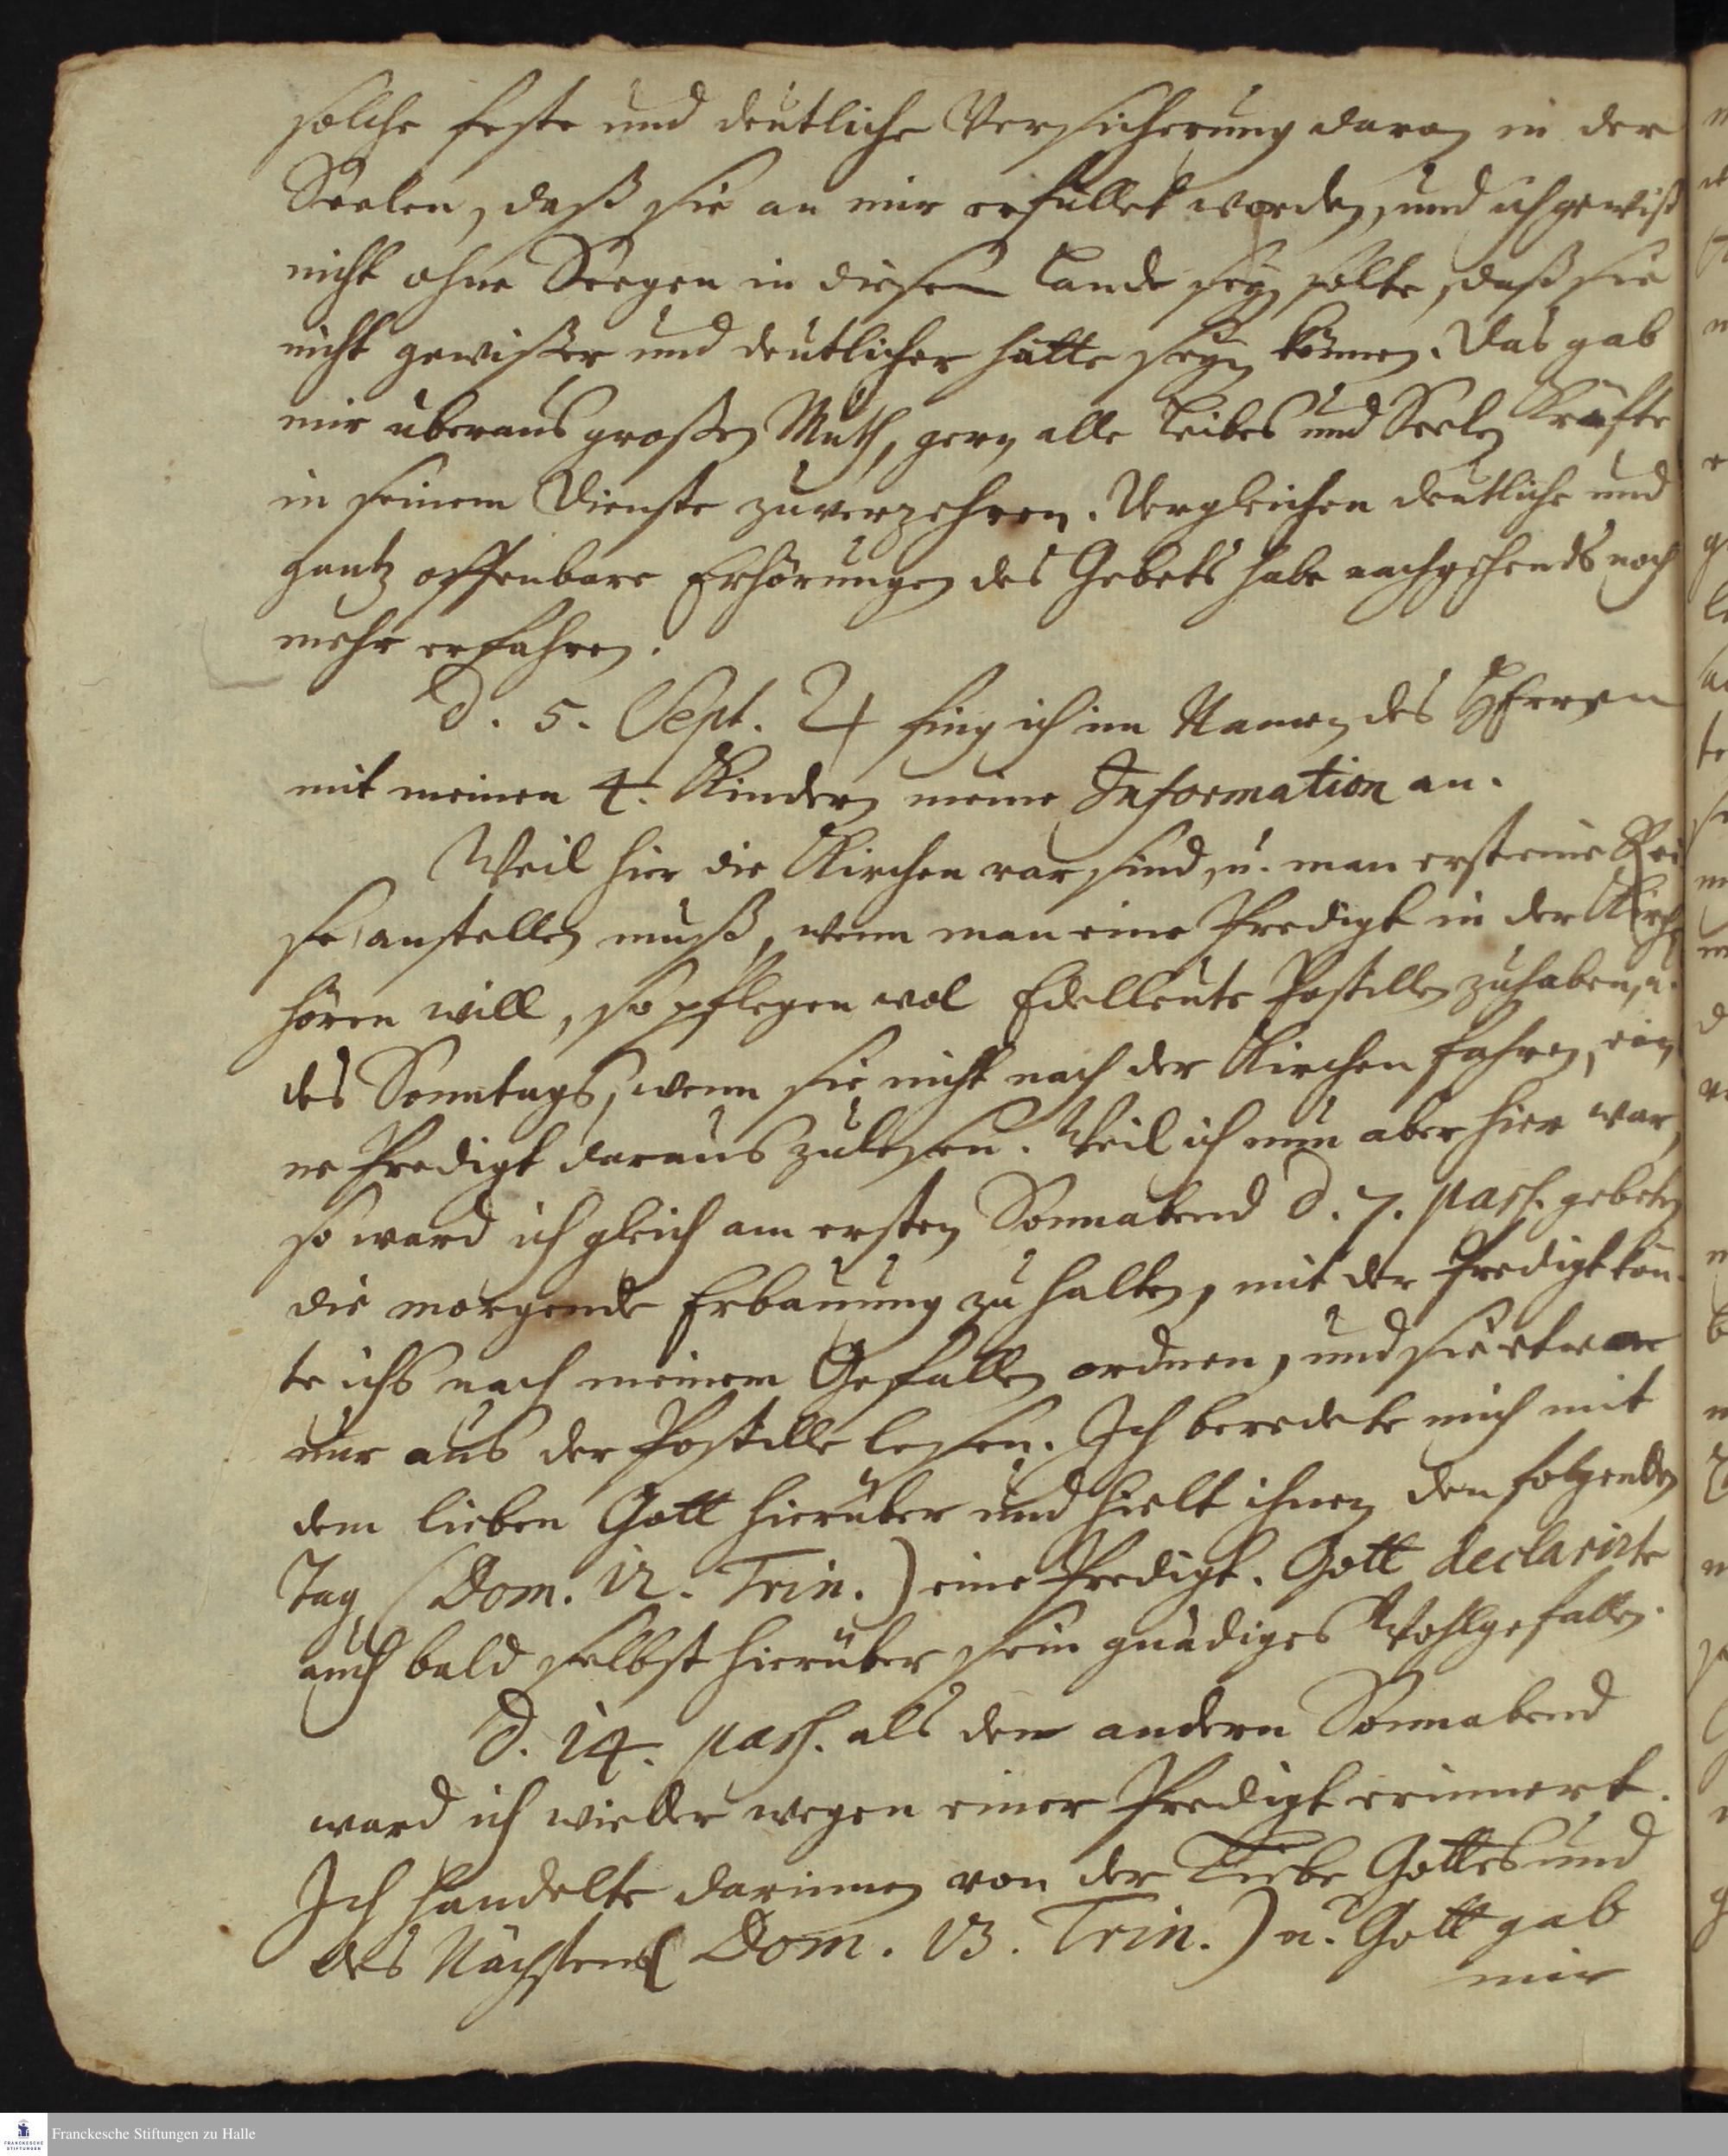 solche feste und deutliche Versicherung daran in der
Seelen, daß sie an mir erfüllet worden, und ich gewiß
nicht ohne Seegen in diesem Lande seyn solte, daß sie
nicht gewißer und deutlicher hätte seyn können. Das gab
mir überaus großen Muth, gern alle Leibes und Seelen Kräfte
in seinem Dienste zuverzehren. Dergleichen deutliche und
gantz offenbare Erhörungen des Gebets habe nachgehends noch
mehr erfahren.
d. 5. Sept. ♃ fing ich im Namen des HErren
mit meinen 4. Kindern meine Information an.
Weil hier die Kirchen rar sind, u. man erst eine Rei
se anstellen muß, wenn man eine Predigt in der Kirchen
hören will, so pflegen wol Edelleute Postillen zuhaben, u.
des Sonntags, wenn sie nicht nach der Kirchen fahren, ei
ne Predigt daraus zulesen. Weil ich nun aber hier war,
so ward ich gleich am ersten Sonnabend d. 7. pass. gebeten
die morgende Erbauung zu halten, mit der Predigt kön-
te ichs nach meinem Gefallen ordnen, und sie etwan
nur aus der Postille lesen. Ich beredete mich mit
dem lieben Gott hierüber und hielt ihnen den folgenden
Tag, (Dom. 12. Trin.) eine Predigt. Gott declarirte
auch bald selbst hierüber sein gnädiges Wohlgefallen.
d. 14. pass. als den andern Sonnabend
ward ich wieder wegen einer Predigt erinnert.
Ich handelte darinnen von der Liebe Gottes und
des Nächsten (Dom. 13. Trin.) u. Gott gab
mir
Franckesche Stiftungen zu Halle